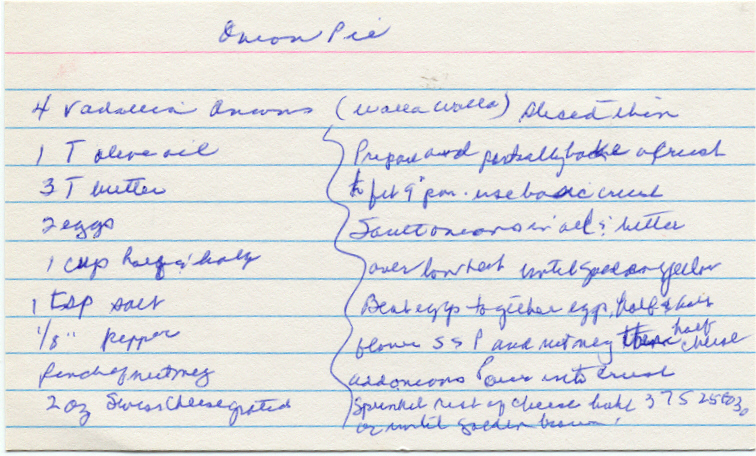 Onion Pie
4 Vadallia Onions (Walla Walla) sliced thin
1 T olive oil
3 T butter
2 eggs
1 cup half & half
1 tsp salt
1/8 " pepper
Pinch of nutmeg
2 oz Swiss Cheese grated
Prepare and partially bake a crust
to fit 9" pan - use basic crust
Saute onions in oil & butter
over low heat until golden yellow
Beat eggs together eggs, half & half
S & P and nutmeg then half cheese
add onions Pour into crust
Sprinkel rest of cheese bake 375 25 to 30
or until golden brown.